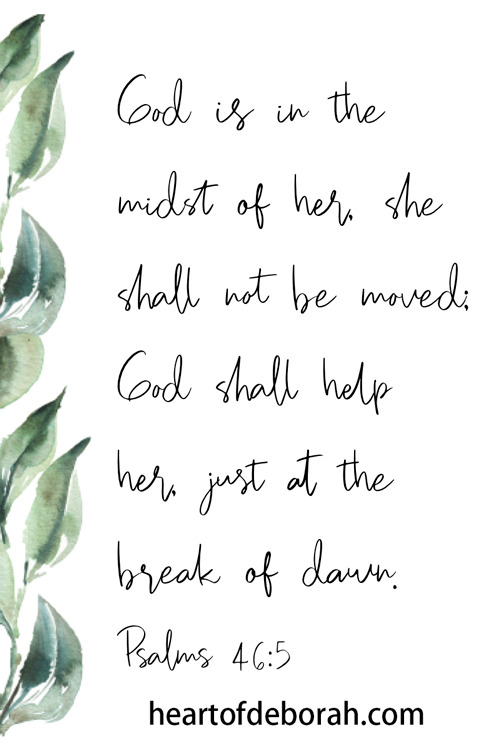 God is in the
midst of her, she
shall not be moved;
God shall help
her, just at the
break of dawn.
Psalms 46:5
heartofdeborah.com